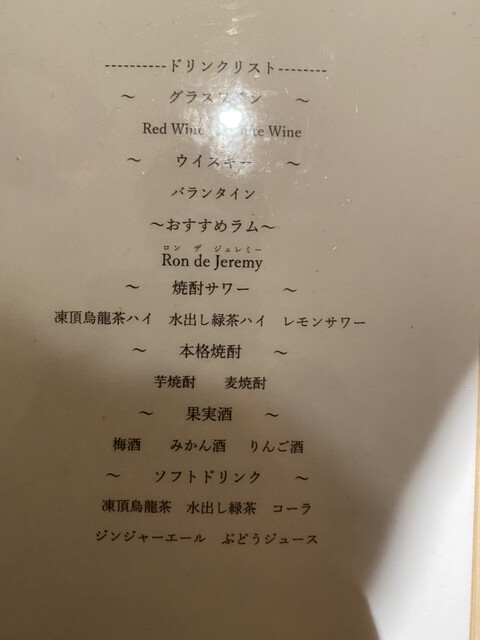 ----------ドリンクリスト--------
～ グラスワイン ～
Red Wine White Wine
～ ウイスキー ～
バランタイン
～おすすめラム～
ロン デ ジェレミー
Ron de Jeremy
～ 焼酎サワー ～
凍頂烏龍茶ハイ 水出し緑茶ハイ レモンサワー
～ 本格焼酎 ～
芋焼酎 麦焼酎
～ 果実酒 ～
梅酒 みかん酒 りんご酒
～ ソフトドリンク ～
凍頂烏龍茶 水出し緑茶 コーラ
ジンジャーエール ぶどうジュース